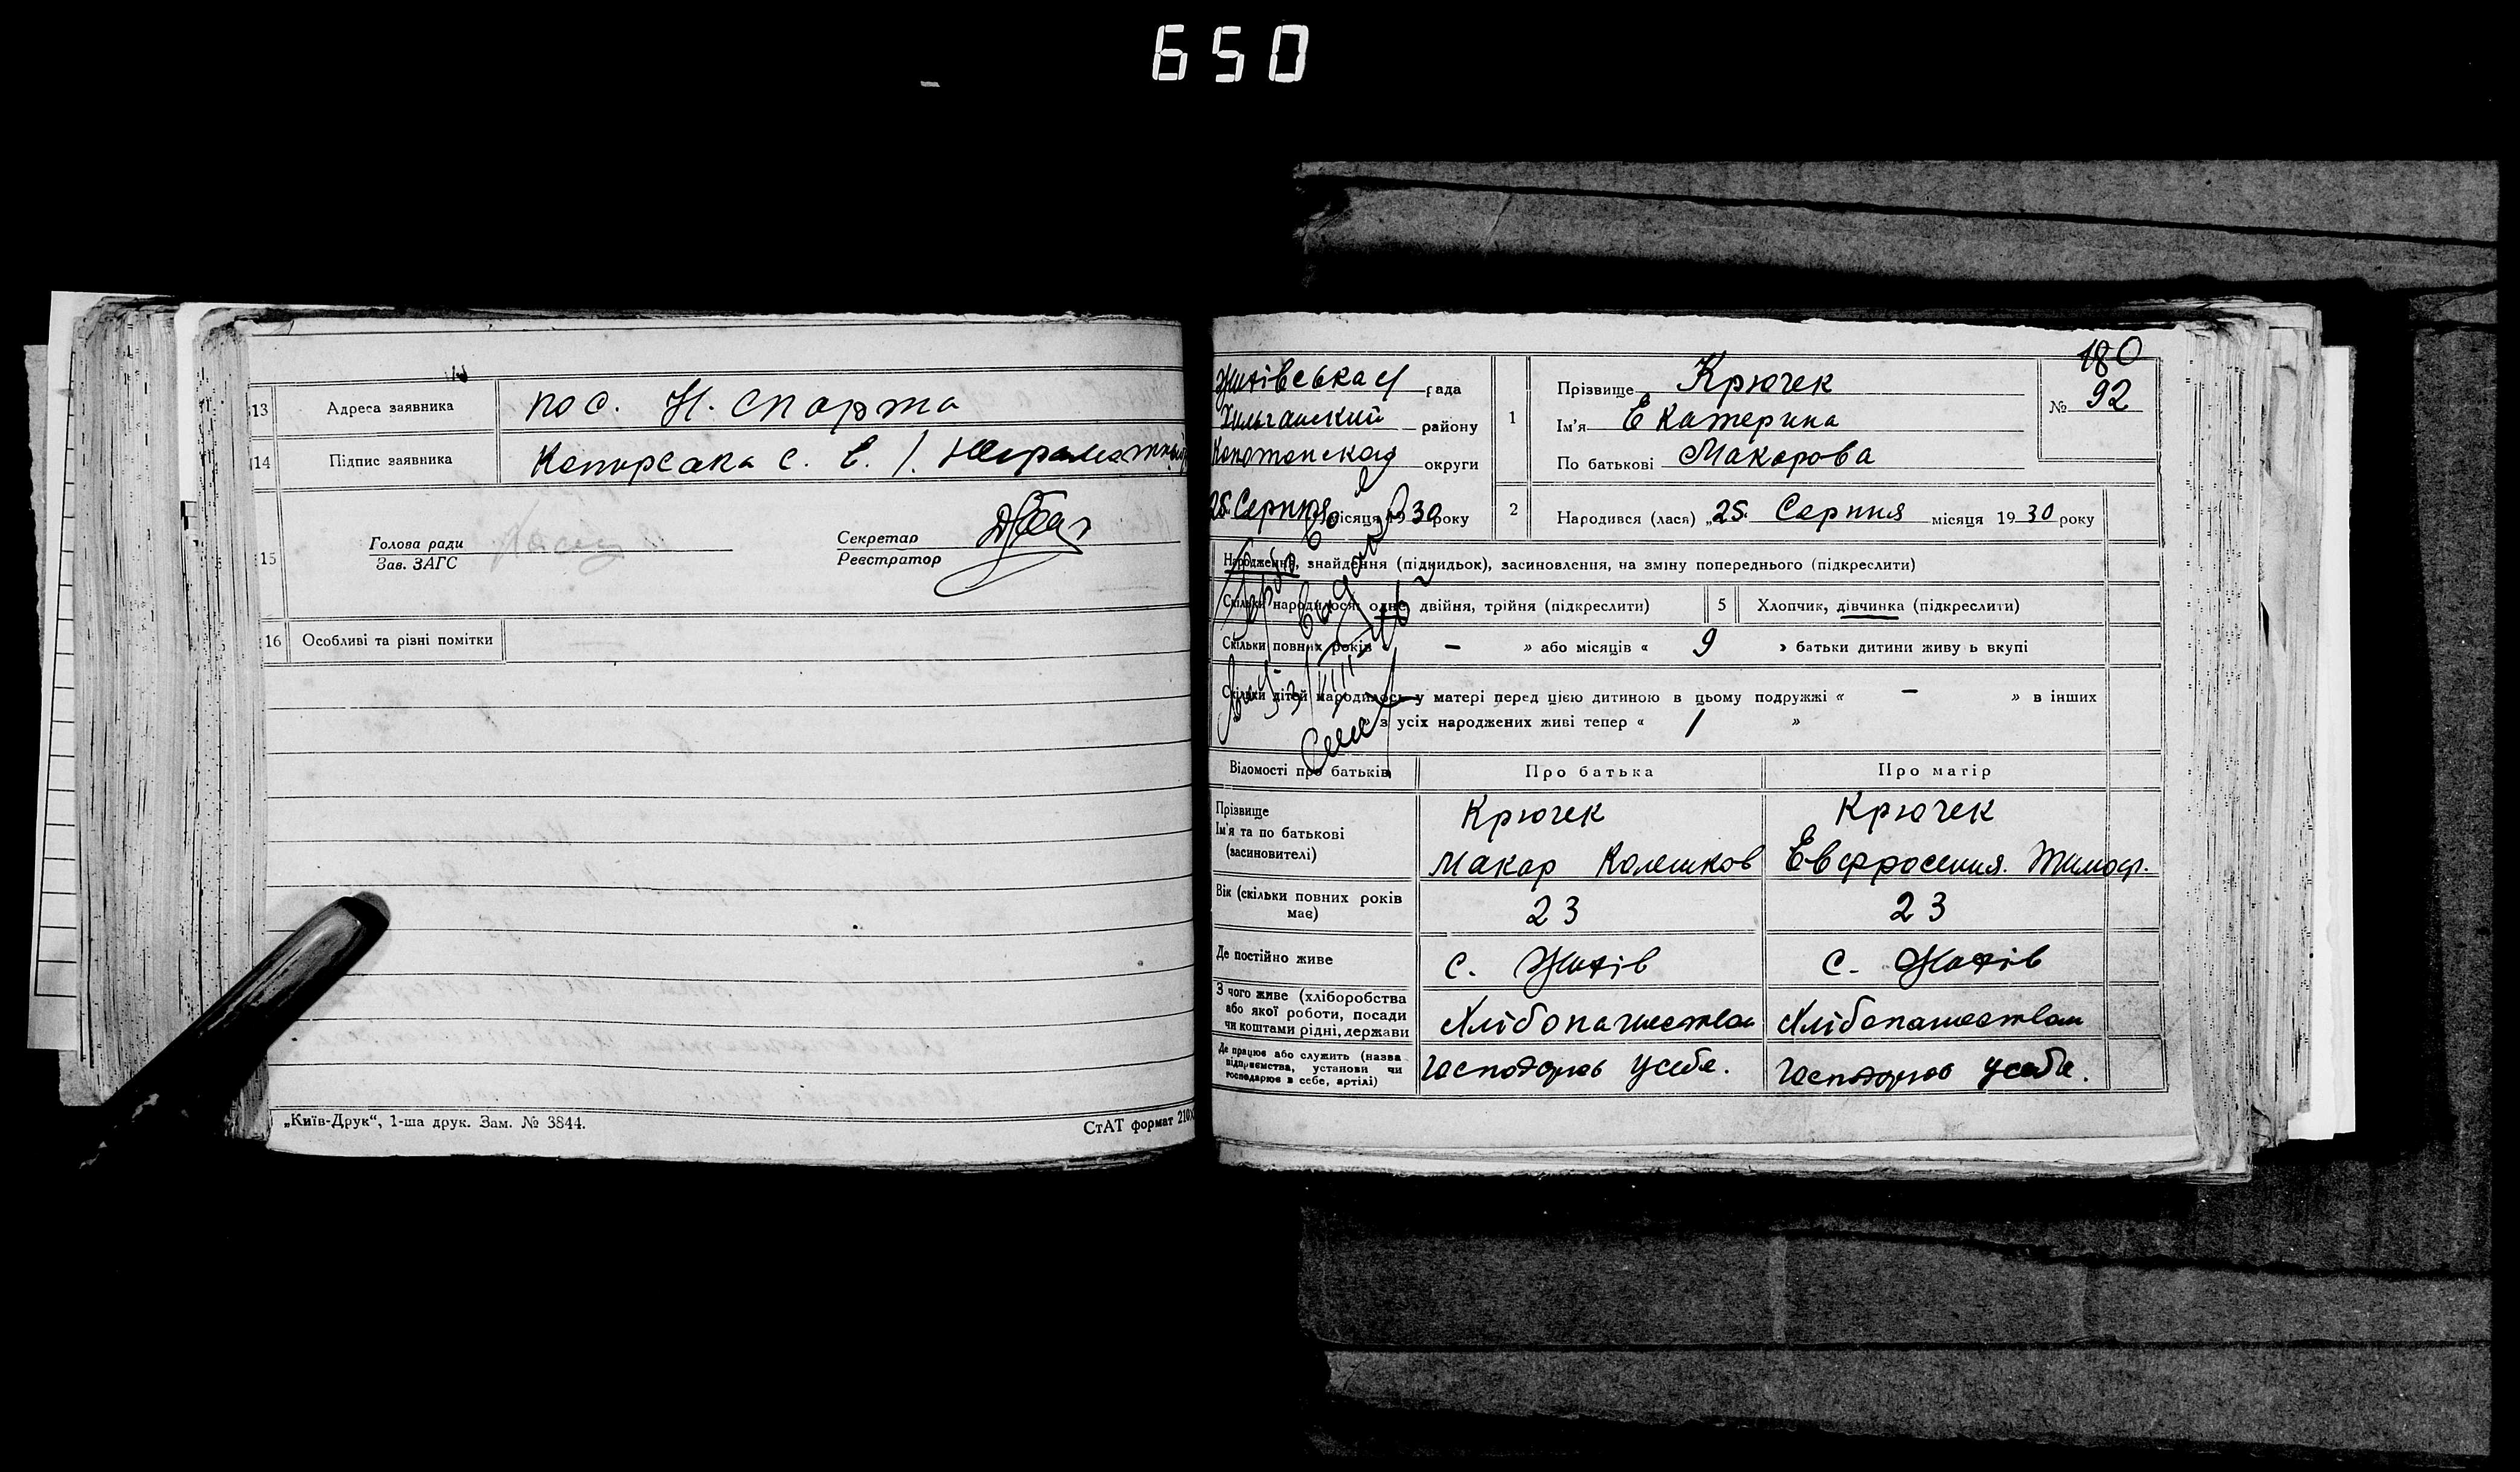 650
13 Адреса заявника пос. Н. Спарта
14 Підпис заявника Копирсака С. Е. /. Неграмотный
15 Голова ради
Зав. ЗАГС
Секретар
Реєстратор
16 Особливі та різні помітки
„Київ-Друк“, 1-ша друк. Зам. № 3844.
СтАТ формат 210
180
№ 92
рада
району
округи
25 Серпня місяця 1930 року
1 Прізвище Крючек
Ім'я Екатерина
По батькові Макарова
2 Народився (лася) „25 Серпня місяця 1930 року
Народження, знайдення (підкидьок), засиновлення, на зміну попереднього (підкреслити)
Скільки народилося: одне, двійня, трійня (підкреслити) 5 Хлопчик, дівчинка (підкреслити)
Скільки повних років – » або місяців « 9 » батьки дитини живу ь вкупі
Скільки дітей народилось у матері перед цією дитиною в цьому подружжі « – » в інших
з усіх народжених живі тепер « 1 »
Відомості про батьків Про батька Про матір
Прізвище Крючек Крючек
Ім'я та по батькові
(засиновителі) Макар Евфросения. Тимоф.
Вік (скільки повних років
має) 23 23
Де постійно живе с. с.
З чого живе (хліборобства
або якої роботи, посади
чи коштами рідні, держави Хлібопашество Хлібопашество
Де працює або служить (назва
підприємства, установи чи
господарює в себе, артілі) усебе. усебе.